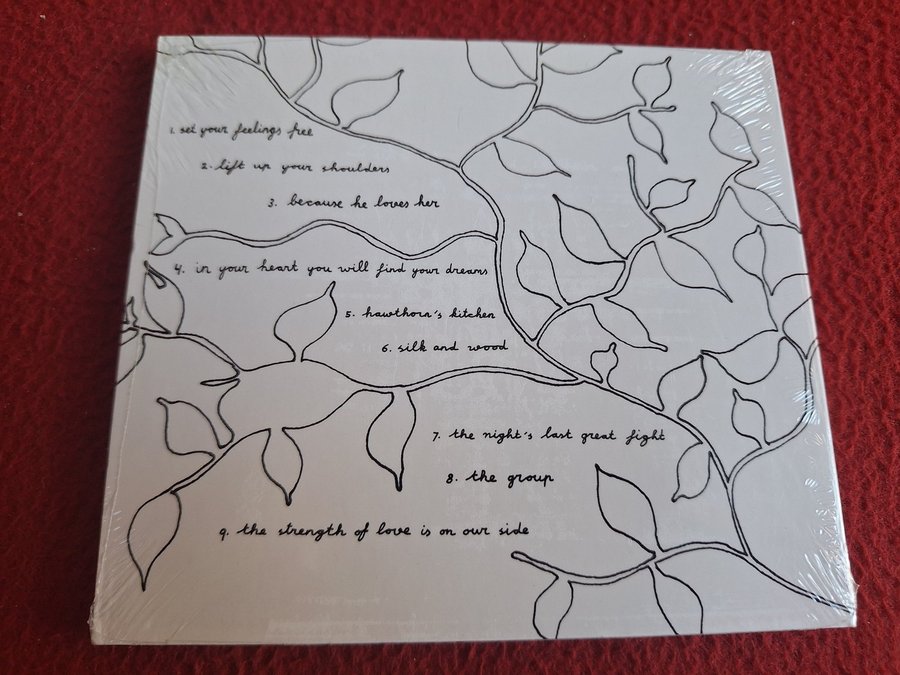 1. set your feelings free
2. lift up your shoulders
3. because he loves her
4. in your heart you will find your dreams
5. hawthorn's kitchen
6. silk and wood
7. the night's last great fight
8. the group
9. the strength of love is on our side